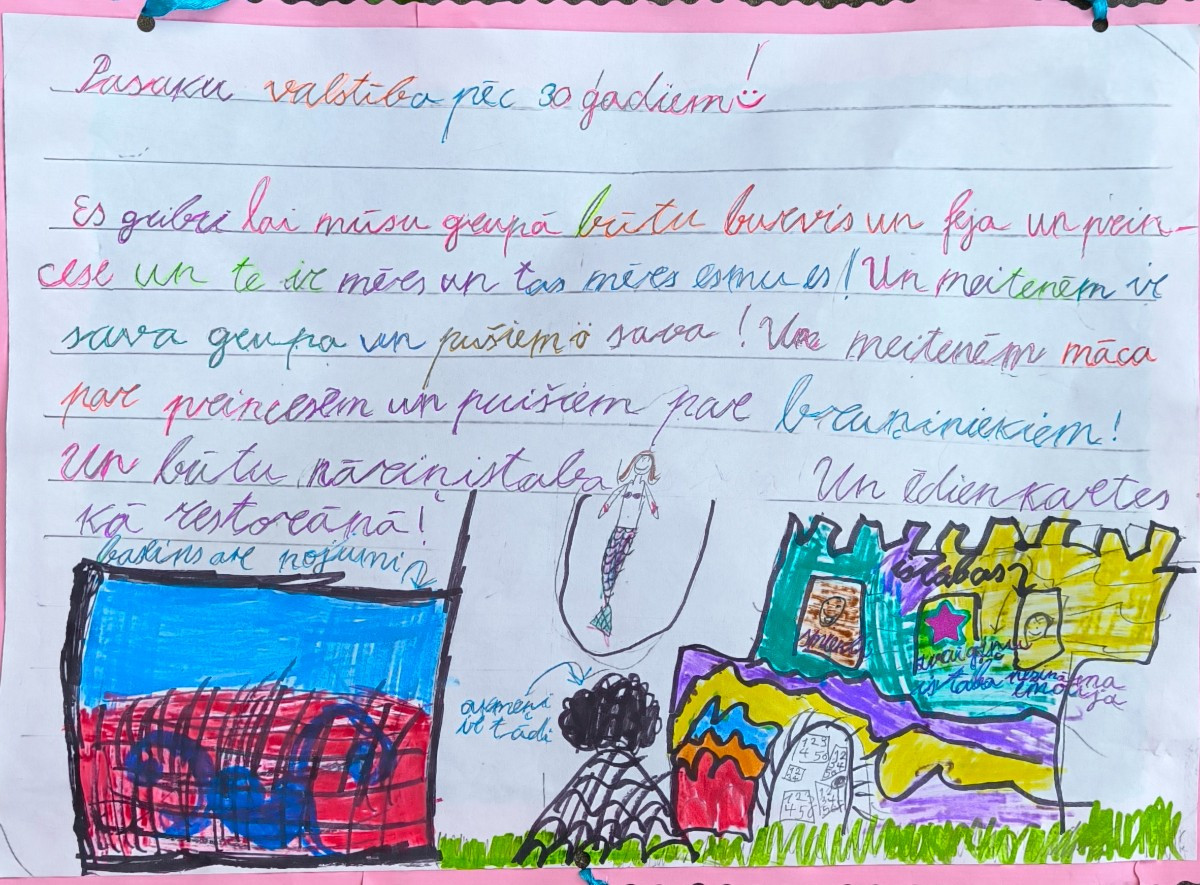 Pasaku valstība pēc 30 gadiem!
Es gribu lai mūsu grupā būtu burvis un feja un prin-
cese un te ir mērs un tas mērs esmu es! Un meitenēm ir
sava grupa un puišiem sava! Un meitenēm māca
par princesēm un puišiem par bruņiniekiem!
Un būtu nāriņistaba Un ēdienkartes
kā restorānā!
baseins ar nojumi
istabas
smieklu
zvaigžņu
istaba
nezināma
emocija
akmeņi
ir tādi
123
456